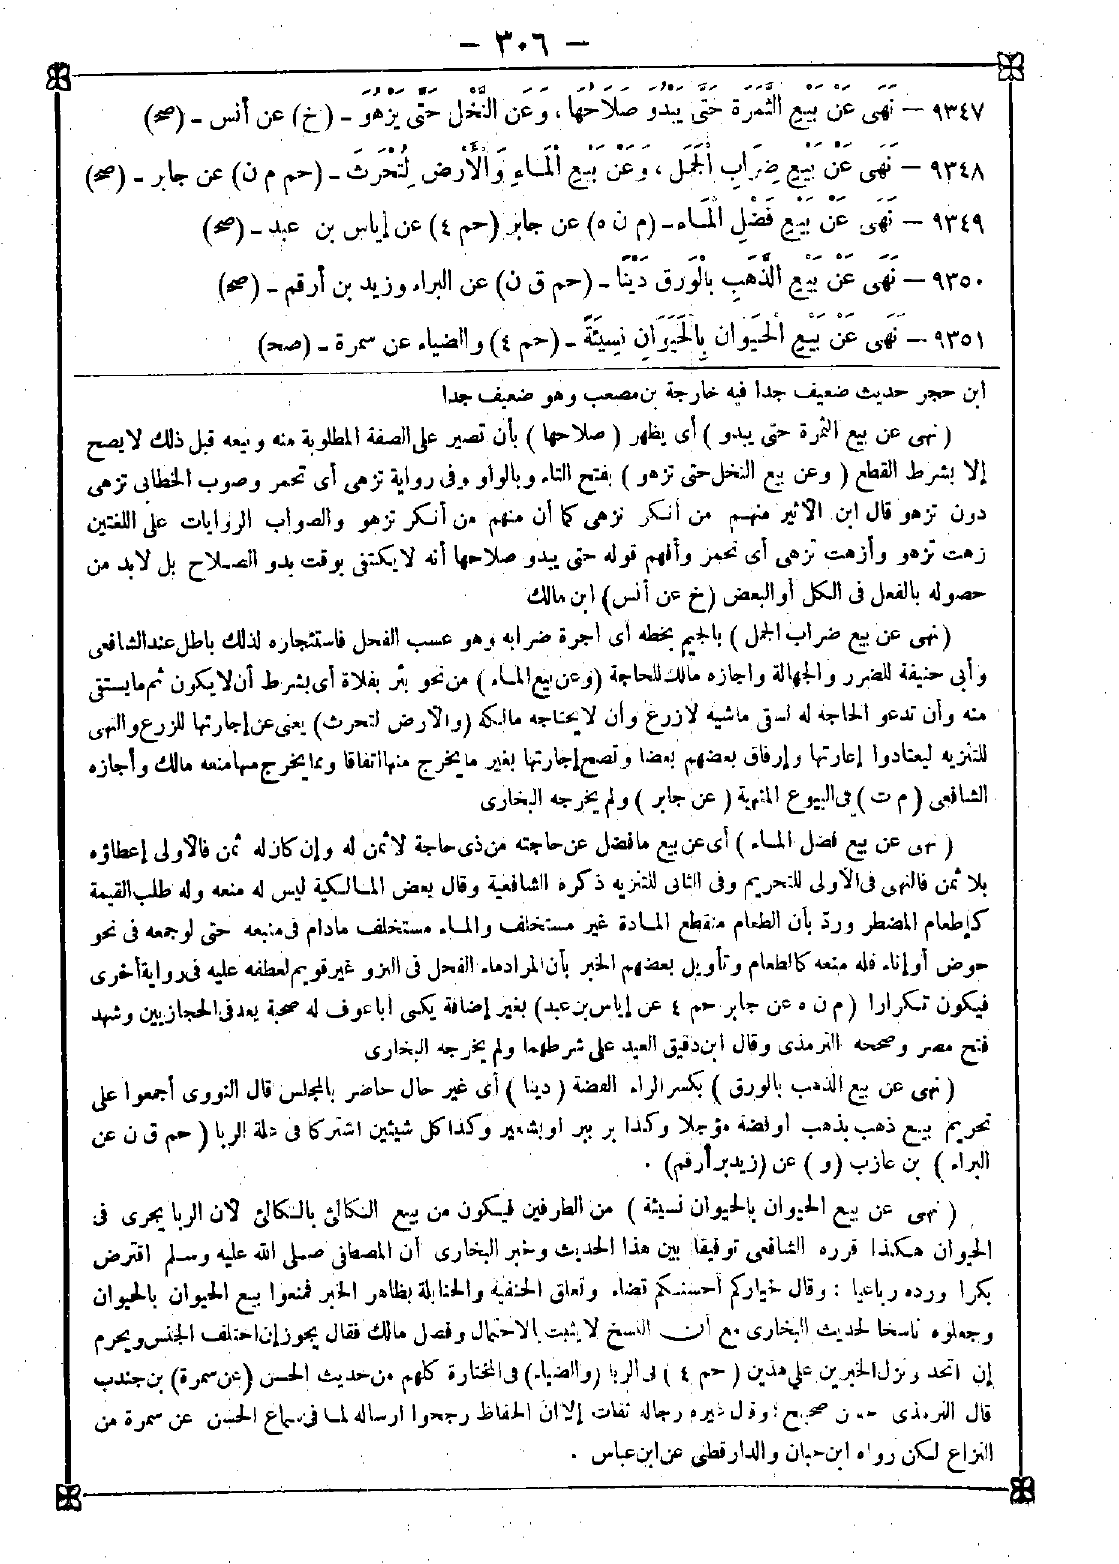 — ٣٠٦ —
٩٣٤٧ — نَهَى عَنْ بَيْعِ الثَّمَرَةِ حَتَّى يَبْدُوَ صَلَاحُهَا، وَعَنِ النَّخْلِ حَتَّى يَزْهُوَ - (خ) عن أنس - (صح)
٩٣٤٨ — نَهَى عَنْ بَيْعِ ضِرَابِ الْجَمَلِ، وَعَنْ بَيْعِ الْمَاءِ وَالْأَرْضِ لِتُحْرَثَ - (حم م ن) عن جابر - (صح)
٩٣٤٩ — نَهَى عَنْ بَيْعِ فَضْلِ الْمَاء - (م ن ه) عن جابر (حم ٤) عن إياس بن عبد - (صح)
٩٣٥٠ — نَهَى عَنْ بَيْعِ الذَّهَبِ بِالْوَرِقِ دَيْنًا - (حم ق ن) عن البراء وزيد بن أرقم - (صح)
٩٣٥١ — نَهَى عَنْ بَيْعِ الْحَيَوَانِ بِالْحَيَوَانِ نَسِيئَةً - (حم ٤) والضياء عن سمرة - (صح)
ابن حجر حديث ضعيف جدا فيه خارجة بن مصعب وهو ضعيف جدا
(نهى عن بيع الثمرة حتى يبدو) أى يظهر (صلاحها) بأن تصير على الصفة المطلوبة منه وبيعه قبل ذلك لا يصح
إلا بشرط القطع (وعن بيع النخل حتى تزهو) بفتح التاء وبالواو وفى رواية تزهى أى تحمر وصوب الخطابى تزهى
دون تزهو قال ابن الأثير منهم من أنكر تزهى كما أن منهم من أنكر تزهو والصواب الروايات على اللغتين
زهت تزهو وأزهت تزهى أى تحمر وأفهم قوله حتى يبدو صلاحها أنه لا يكتفى بوقت بدو الصلاح بل لابد من
حصوله بالفعل فى الكل أو البعض (خ عن أنس) ابن مالك
(نهى عن بيع ضراب الجمل) بالجيم بخطه أى أجرة ضرابه وهو عسب الفحل فاستئجاره لذلك باطل عند الشافعى
وأبى حنيفة للضرر والجهالة واجازه مالك للحاجة (وعن بيع الماء) من نحو بئر بفلاة أى بشرط أن لا يكون ثم ما يستقى
منه وأن تدعو الحاجه له لسقى ماشيه لا زرع وأن لا يحتاجه مالكه (والأرض لتحرث) يعنى عن إجارتها للزرع والنهى
للتنزيه ليعتادوا إعارتها وإرفاق بعضهم بعضا وتصح إجارتها بغير ما يخرج منها اتفاقا وبما يخرج منها منعه مالك وأجازه
الشافعى (م ت) فى البيوع المنهية (عن جابر) ولم يخرجه البخارى
(نهى عن بيع فضل الماء) أى عن بيع ما فضل عن حاجته من ذى حاجة لا ثمن له وإن كان له ثمن فالأولى إعطاؤه
بلا ثمن فالنهى فى الأولى للتحريم وفى الثانى للتنزيه ذكره الشافعية وقال بعض المالكية ليس له منعه وله طلب القيمة
كإطعام المضطر ورد بأن الطعام منقطع المادة غير مستخلف والماء مستخلف مادام فى منبعه حتى لو جمعه فى نحو
حوض أو إناء فله منعه كالطعام وتأويل بعضهم الخبر بأن المراد ماء الفحل فى النزو غير قويم لعطفه عليه فى رواية أخرى
فيكون تكرارا (م ن ه عن جابر حم ٤ عن إياس بن عبد) بغير إضافة يكنى أبا عوف له صحبة يعد فى الحجازيين وشهد
فتح مصر وصححه الترمذى وقال ابن دقيق العيد على شرطهما ولم يخرجه البخارى
(نهى عن بيع الذهب بالورق) بكسر الراء الفضة (دينا) أى غير حال حاضر بالمجلس قال النووى أجمعوا على
تحريم بيع ذهب بذهب أو فضة مؤجلا وكذا بر ببر أو بشعير وكذا كل شيئين اشتركا فى علة الربا (حم ق ن عن
البراء) بن عازب (و) عن (زيد بن أرقم) .
(نهى عن بيع الحيوان بالحيوان نسيئة) من الطرفين فيكون من بيع الكالئ بالكالئ لأن الربا يجرى فى
الحيوان هكذا قرره الشافعى توفيقا بين هذا الحديث وخبر البخارى أن المصطفى صلى الله عليه وسلم اقترض
بكرا ورده رباعيا : وقال خياركم أحسنكم قضاء وتعلق الحنفية والحنابلة بظاهر الخبر فمنعوا بيع الحيوان بالحيوان
وجعلوه ناسخا لحديث البخارى مع أن النسخ لا يثبت بالاحتمال وفصل مالك فقال يجوز إن اختلف الجنس ويحرم
إن اتحد ونزل الخبرين على هذين (حم ٤) فى الربا (والضياء) فى المختارة كلهم من حديث الحسن (عن سمرة) بن جندب
قال الترمذى حسن صحيح ؛ وقال غيره رجاله ثقات إلا أن الحفاظ رجحوا ارساله لما فى سماع الحسن عن سمرة من
النزاع لكن رواه ابن حبان والدارقطنى عن ابن عباس .